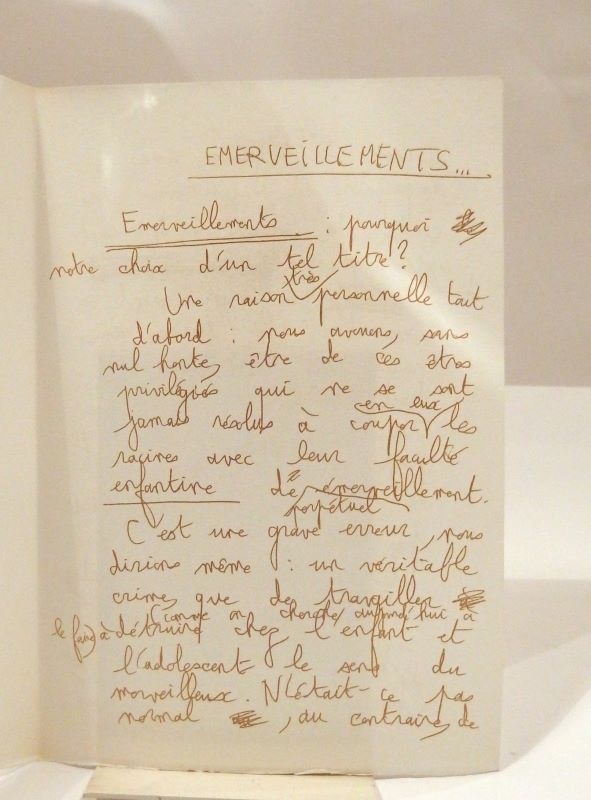 EMERVEILLEMENTS...
Emerveillements : pourquoi
notre choix d'un tel titre?
très
Une raison personnelle tout
d'abord : nous avouons, sans
nul honte, être de ces êtres
privilégiés qui ne se sont
en eux
jamais résolus à couper les
racines avec leur faculté
enfantine de émerveillement.
perpétuel
C'est une grave erreur, nous
dirions même : un véritable
crime, que de travailler
(comme on cherche aujourd'hui à
le faire) à détruire chez l'enfant et
l'adolescent le sens du
merveilleux. N'était-ce pas
normal , au contraire, de